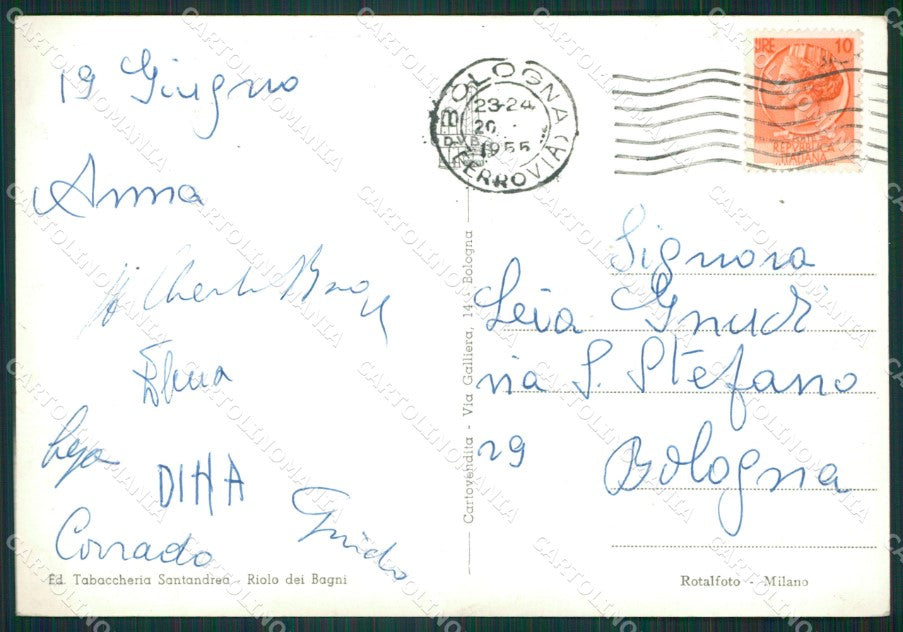 19 Giugno
Anna
Elena
DINA
Corrado
Guido
BOLOGNA
23-24
20
1955
(FERROVIA)
LIRE 10
REPVBBLICA
ITALIANA
Signora
Leia Gnudi
via S. Stefano
29
Bologna
Cartovendita - Via Galliera, 14 - Bologna
Ed. Tabaccheria Santandrea - Riolo dei Bagni
Rotalfoto - Milano
CARTOLINOMANIA